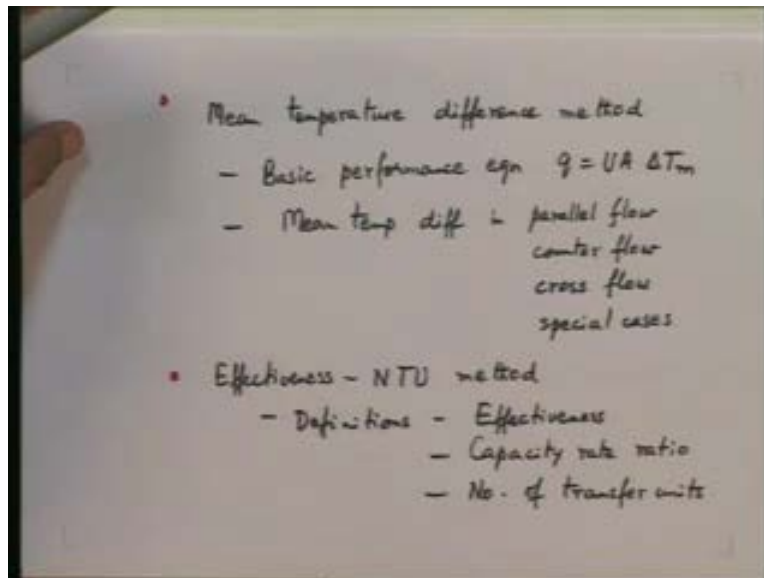 • Mean temperature difference method
– Basic performance eqn q = UA ΔTm
– Mean temp diff in parallel flow
counter flow
cross flow
special cases
• Effectiveness – NTU method
– Definitions – Effectiveness
– Capacity rate ratio
– No. of transfer units